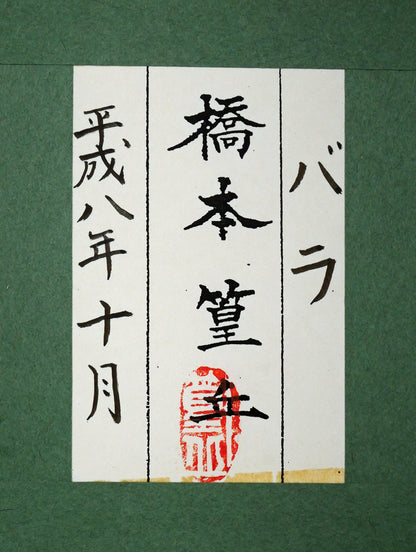 バラ
橋本篁丘
平成八年十月